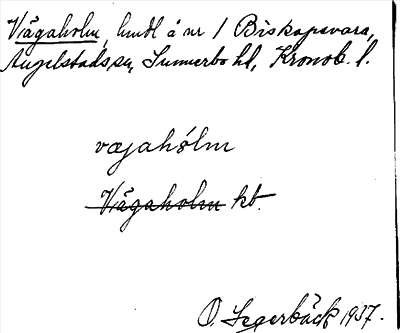 Vägaholm, hmdl å nr 1 Biskopsvara,
Angelstads sn, Sunnerbo hd, Kronob. l.
vægahólm
Vägaholm kb.
O. Segerbäck 1937.